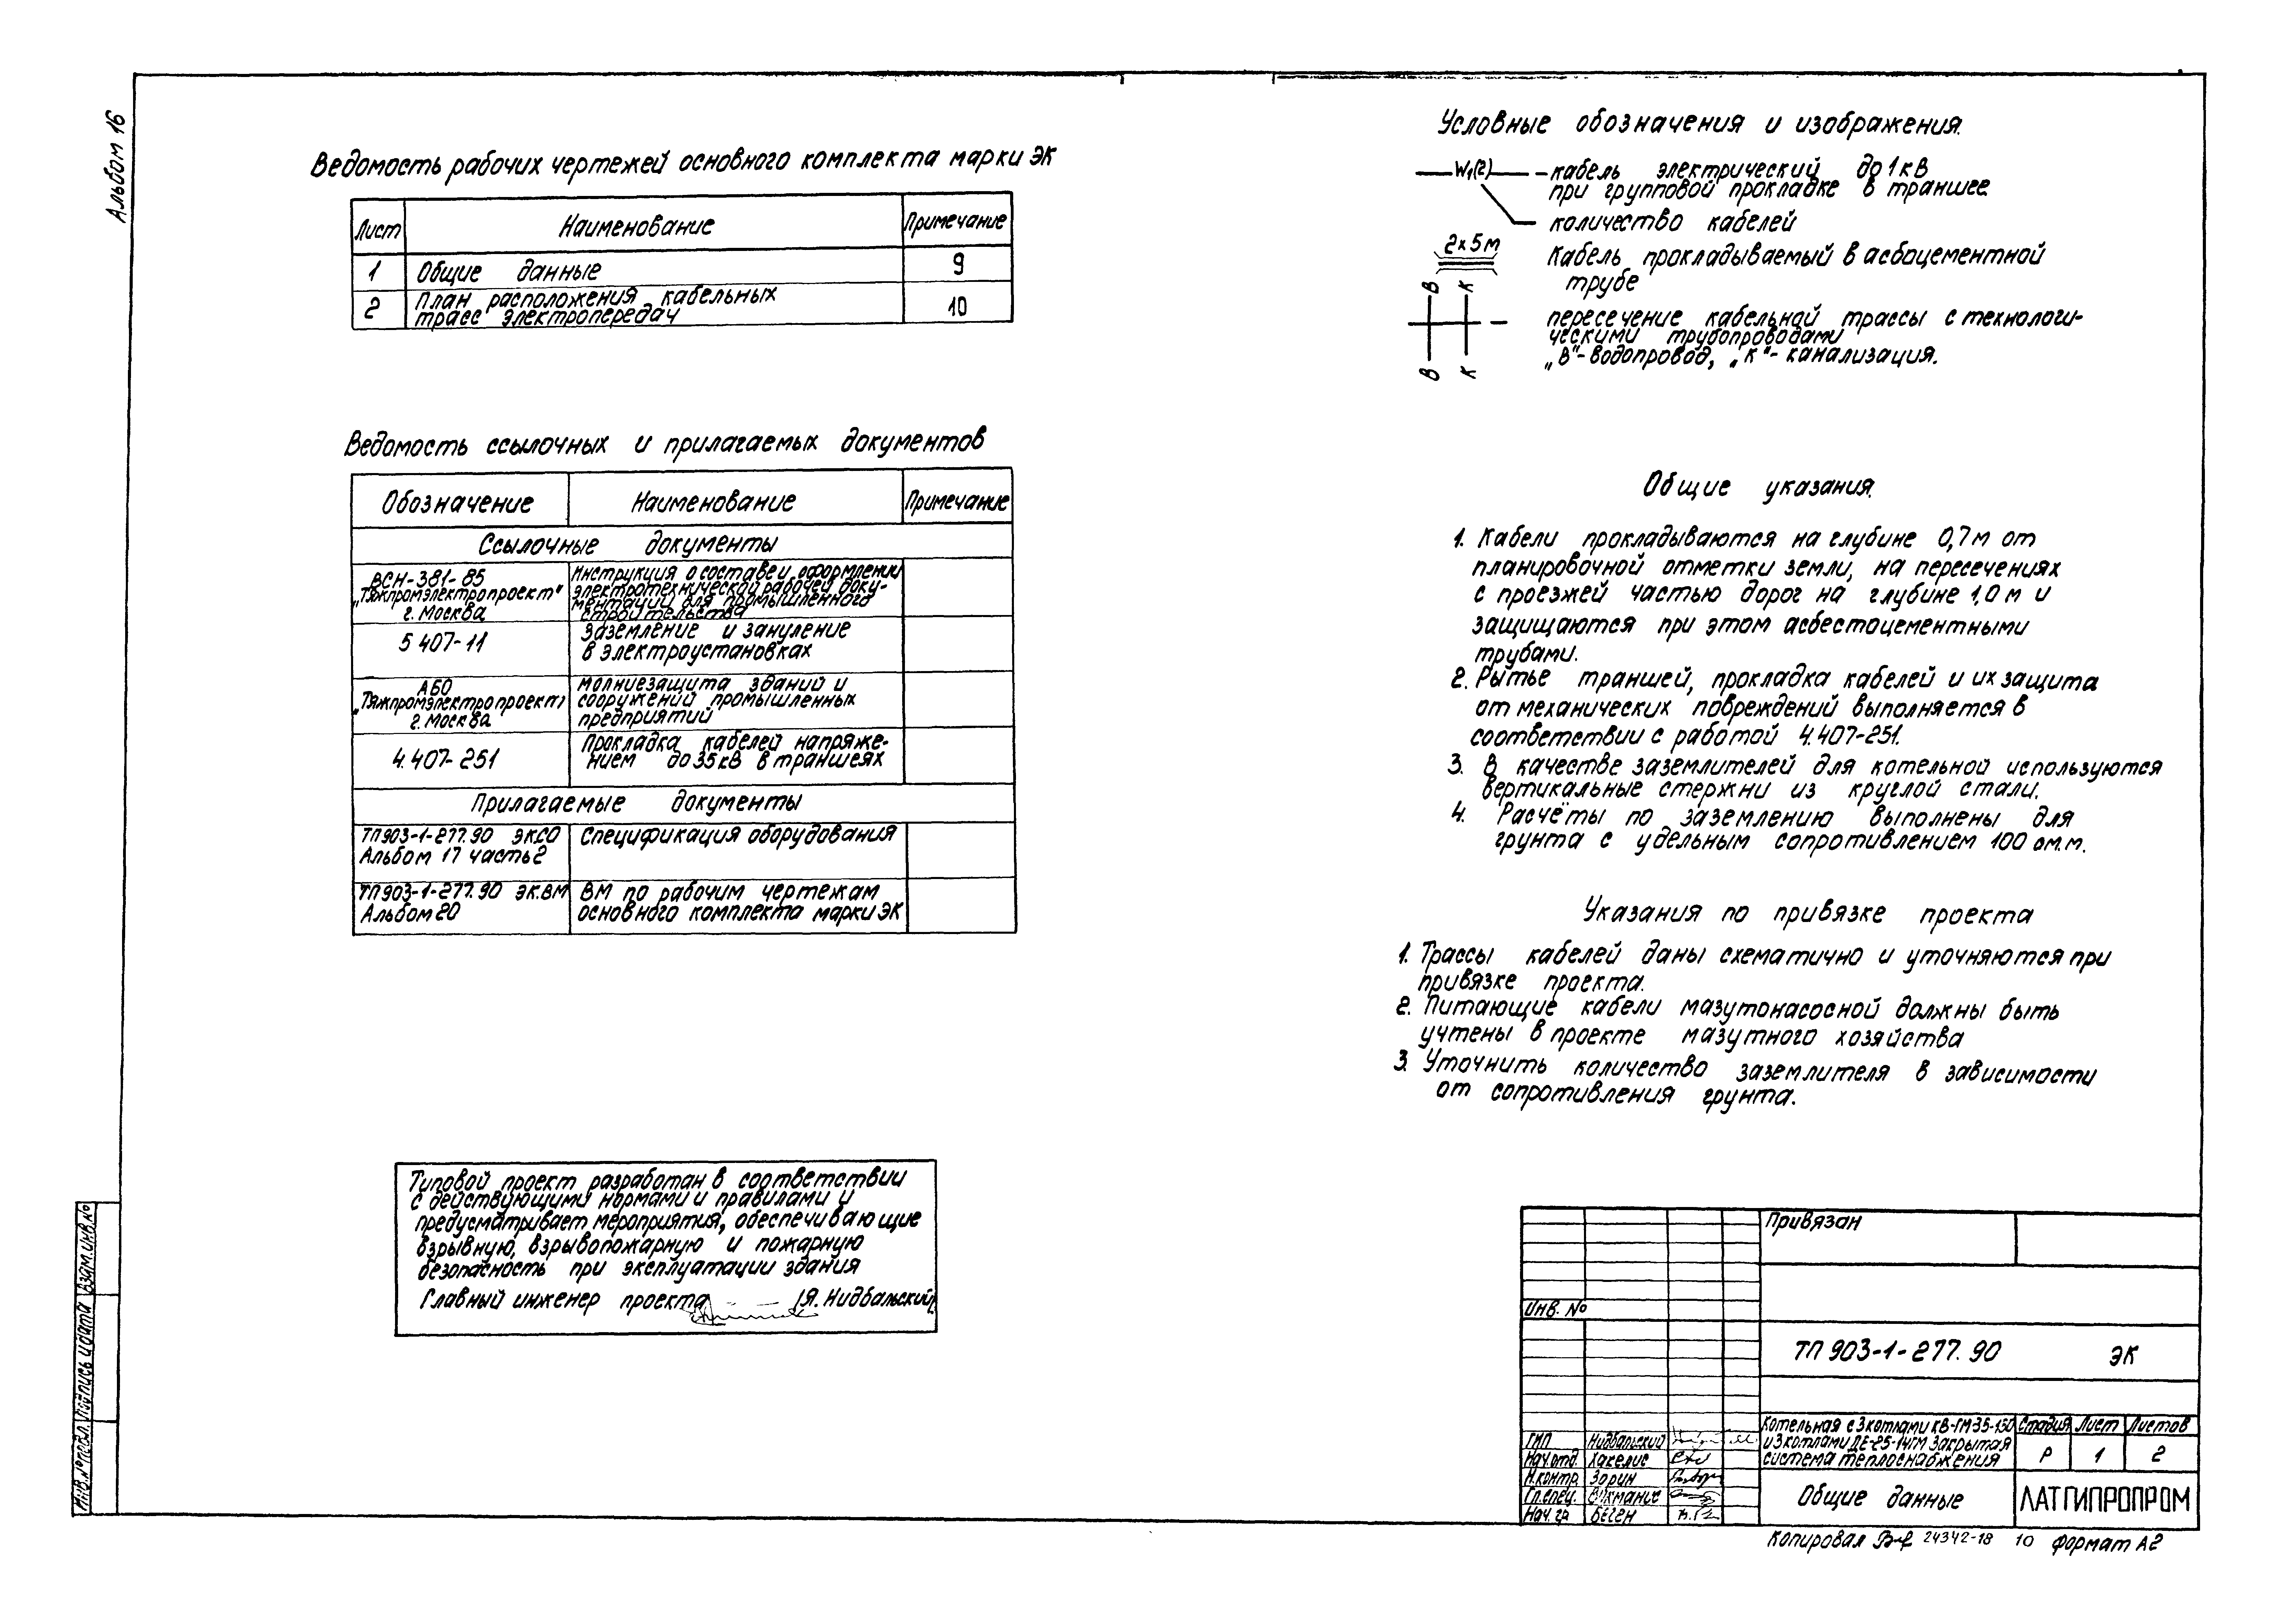 Альбом 16
Ведомость рабочих чертежей основного комплекта марки ЭК
Лист Наименование Примечание
1 Общие данные 9
2 План расположения кабельных трасс электропередач 10
Ведомость ссылочных и прилагаемых документов
Обозначение Наименование Примечание
Ссылочные документы
ВСН-381-85
„Тяжпромэлектропроект"
г. Москва
Инструкция о составе и оформлении
электротехнической рабочей доку-
ментации для промышленного
строительства
5 407-11
Заземление и зануление
в электроустановках
А60
„Тяжпромэлектропроект"
г. Москва
Молниезащита зданий и
сооружений промышленных
предприятий
4.407-251
Прокладка кабелей напряже-
нием до 35кВ в траншеях
Прилагаемые документы
ТП903-1-277.90 ЭК.СО
Альбом 17 часть 2
Спецификация оборудования
ТП903-1-277.90 ЭК.ВМ
Альбом 20
ВМ по рабочим чертежам
основного комплекта марки ЭК
Типовой проект разработан в соответствии
с действующими нормами и правилами и
предусматривает мероприятия, обеспечивающие
взрывную, взрывопожарную и пожарную
безопасность при эксплуатации здания
Главный инженер проекта /Я. Нидбальский/
Условные обозначения и изображения.
W1(2) - кабель электрический до 1кВ
при групповой прокладке в траншее.
количество кабелей
2х5м
Кабель прокладываемый в асбоцементной
трубе
В К
пересечение кабельной трассы с технологи-
ческими трубопроводами
„В"- водопровод, „К"- канализация.
В К
Общие указания.
1. Кабели прокладываются на глубине 0,7м от
планировочной отметки земли, на пересечениях
с проезжей частью дорог на глубине 1,0м и
защищаются при этом асбестоцементными
трубами.
2. Рытье траншей, прокладка кабелей и их защита
от механических повреждений выполняется в
соответствии с работой 4.407-251.
3. В качестве заземлителей для котельной используются
вертикальные стержни из круглой стали.
4. Расчёты по заземлению выполнены для
грунта с удельным сопротивлением 100 ом.м.
Указания по привязке проекта
1. Трассы кабелей даны схематично и уточняются при
привязке проекта.
2. Питающие кабели мазутонасосной должны быть
учтены в проекте мазутного хозяйства
3. Уточнить количество заземлителя в зависимости
от сопротивления грунта.
Инв.№подл. Подпись и дата Взам.инв.№
Привязан
Инв. №
ТП 903-1-277.90 ЭК
ГИП Нидбальский
Нач.отд. Хакелис
Н.контр. Зорин
Гл.спец.
Нач.гр. Беген
Котельная с 3 котлами КВ-ГМ-35-150
и 3 котлами ДЕ-25-14ГМ Закрытая
система теплоснабжения
Стадия Лист Листов
Р 1 2
Общие данные
ЛАТГИПРОПРОМ
Копировал 24342-18 10 Формат А2